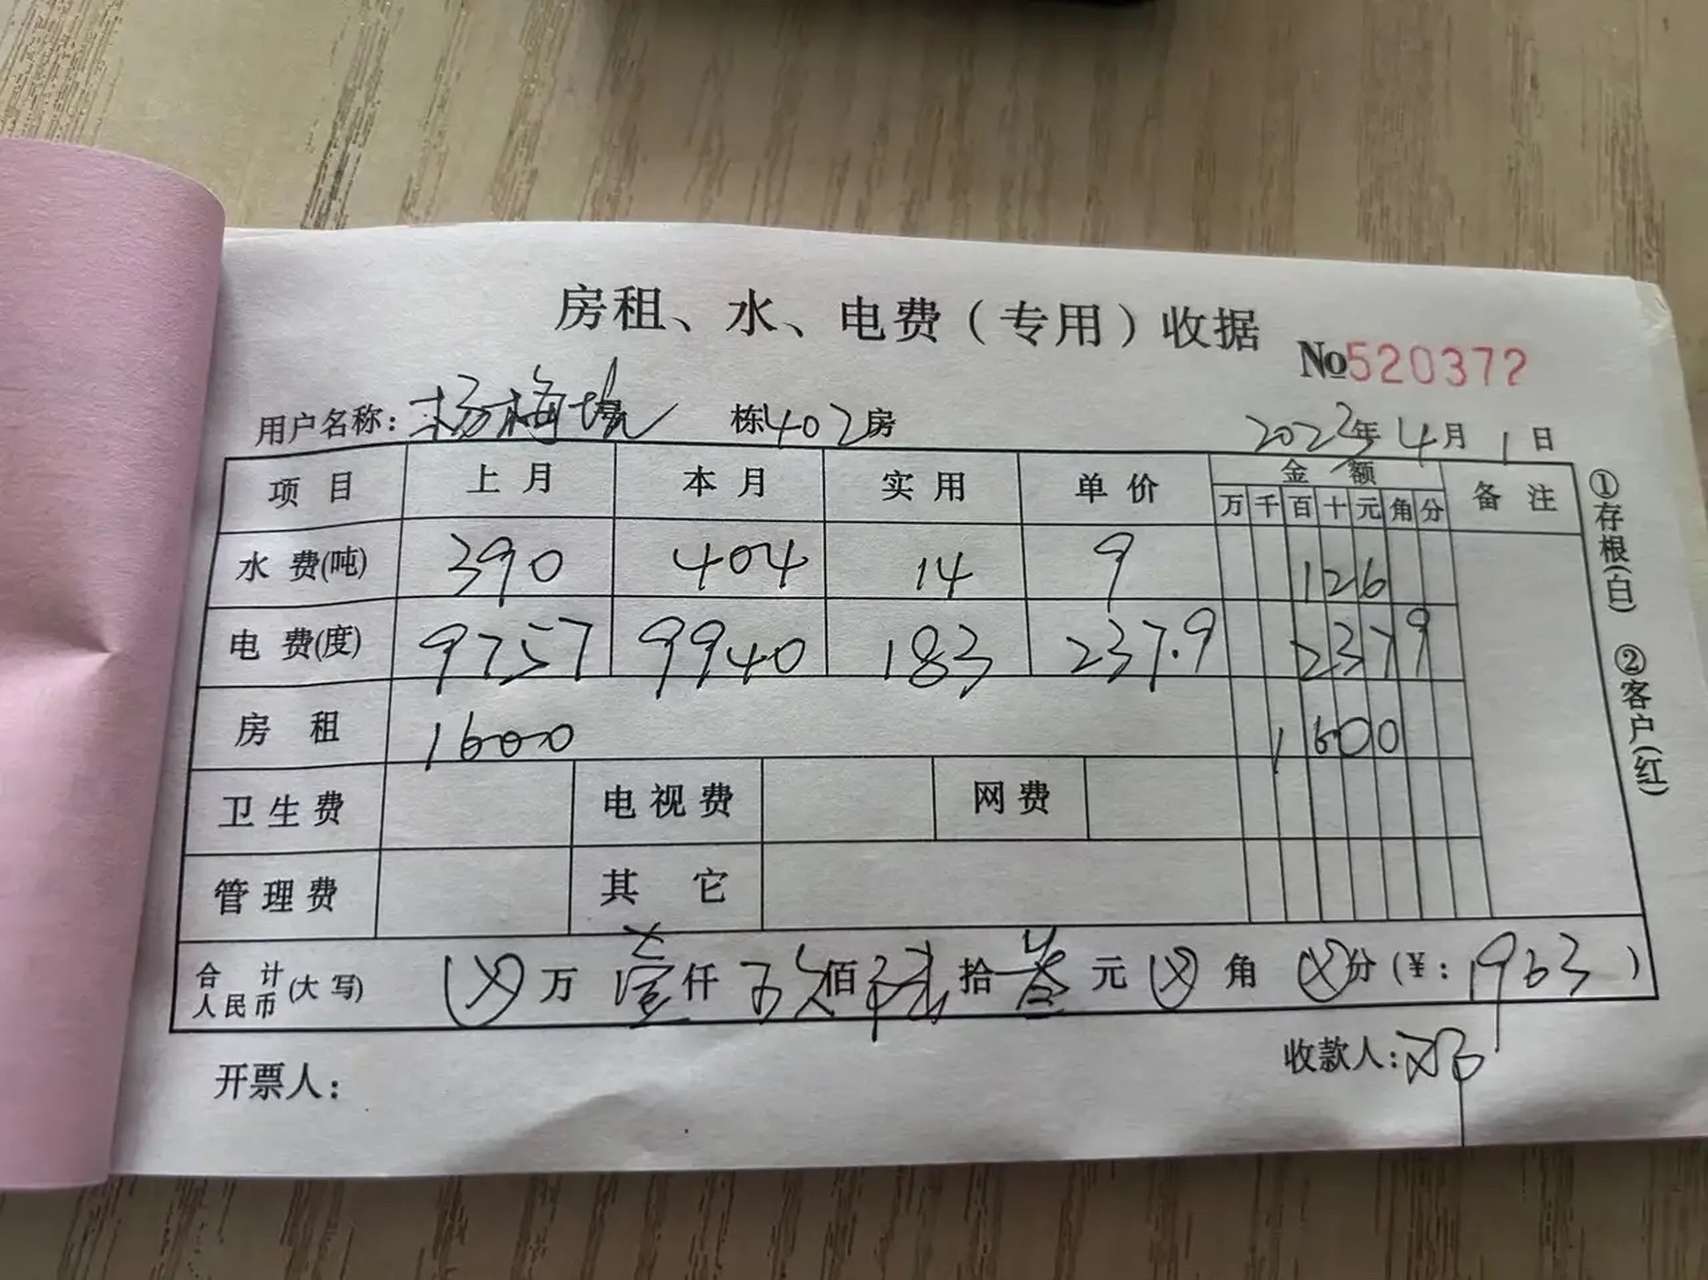 房租、水、电费（专用）收据
No520372
用户名称：杨梅坑 栋402房 2022年4月1日
项目 上月 本月 实用 单价 金额 备注
万 千 百 十 元 角 分
水费(吨) 390 404 14 9 126
电费(度) 9757 9940 183 237.9 2379
房租 1600 1600
卫生费 电视费 网费
管理费 其它
合计人民币(大写) 万 壹仟 佰 拾 叁元 角 分(¥：1963)
开票人： 收款人：邓
①存根(白) ②客户(红)